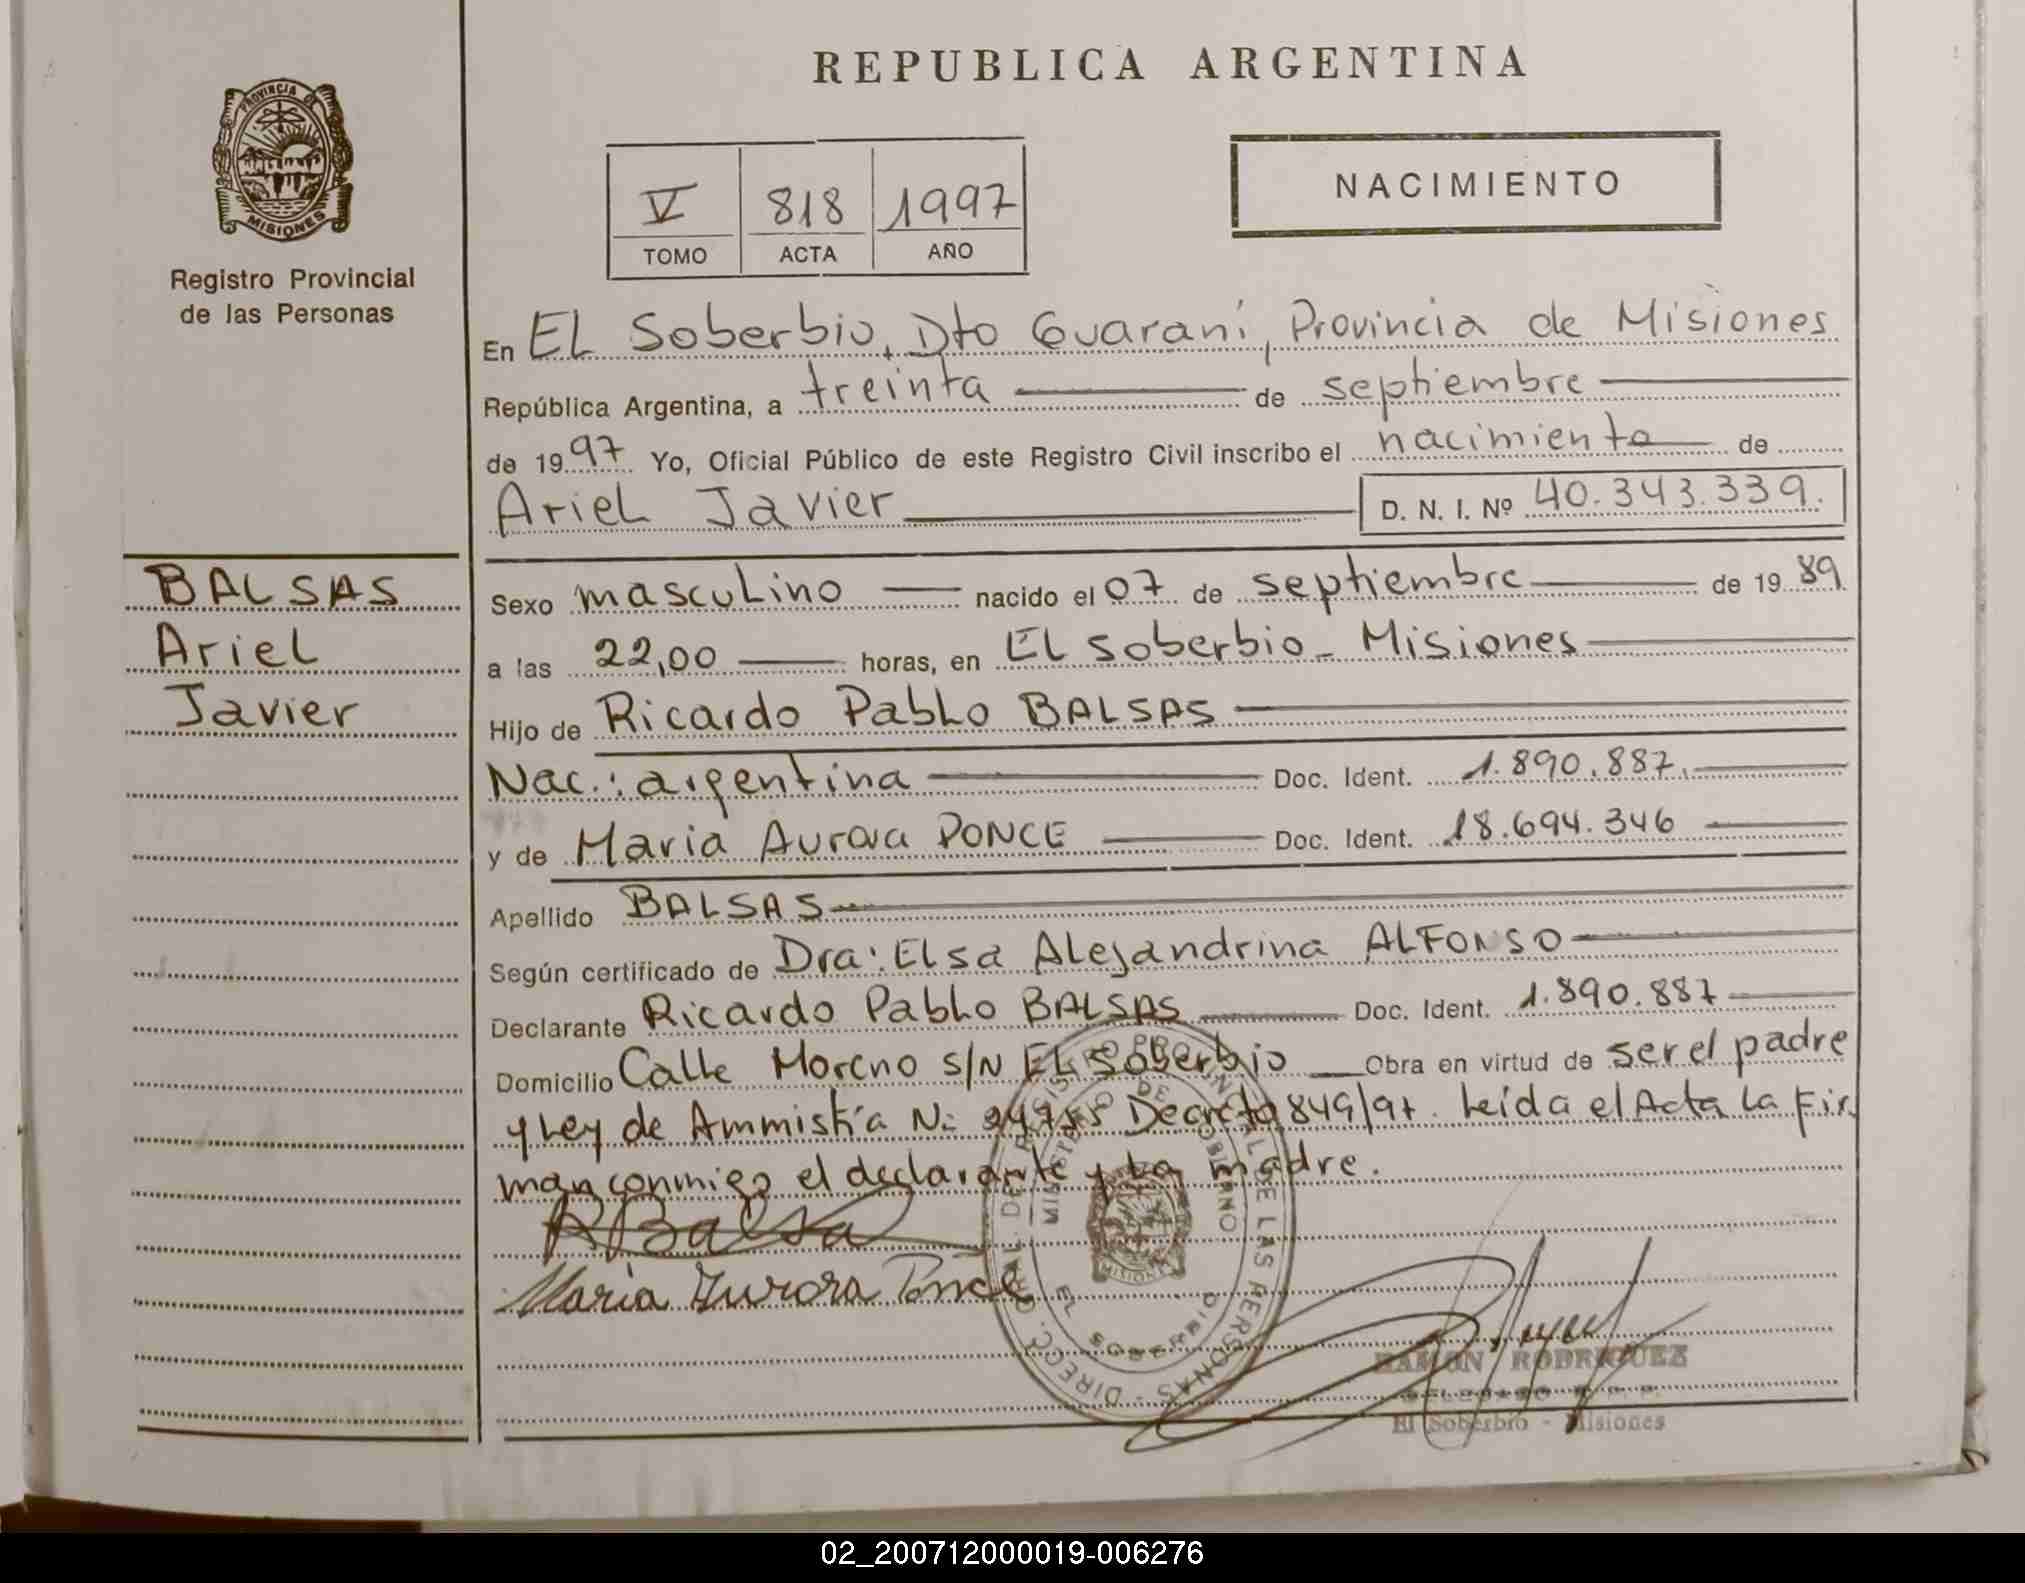 REPUBLICA ARGENTINA
PROVINCIA DE
MISIONES
Registro Provincial
de las Personas
V 818 1997
TOMO ACTA AÑO
NACIMIENTO
En EL Soberbio, Dto Guaraní, Provincia de Misiones
República Argentina, a treinta de septiembre
de 1997 Yo, Oficial Público de este Registro Civil inscribo el nacimiento de
Ariel Javier D. N. I. Nº 40.343.339.
BALSAS
Ariel
Javier
Sexo masculino nacido el 07 de septiembre de 1989
a las 22,00 horas, en EL Soberbio - Misiones
Hijo de Ricardo Pablo BALSAS
Nac.: argentina Doc. Ident. 1.890.887.
y de Maria Aurora PONCE Doc. Ident. 18.694.346
Apellido BALSAS
Según certificado de Dra: Elsa Alejandrina ALFONSO
Declarante Ricardo Pablo BALSAS Doc. Ident. 1.890.887
Domicilio Calle Moreno s/N EL Soberbio Obra en virtud de ser el padre
y Ley de Ammistía N: Decreto 849/97. Leída el Acta La Fir
man conmigo el declarante y La madre.
R Balsa
Maria Aurora Ponce
DIRECC. GRAL. DEL REGISTRO PROVINCIAL DE LAS PERSONAS
MINISTERIO DE GOBIERNO
MISIONES
EL SOBERBIO
RAMON RODRIGUEZ
DELEGADO R. P. P.
El Soberbio - Misiones
02_200712000019-006276